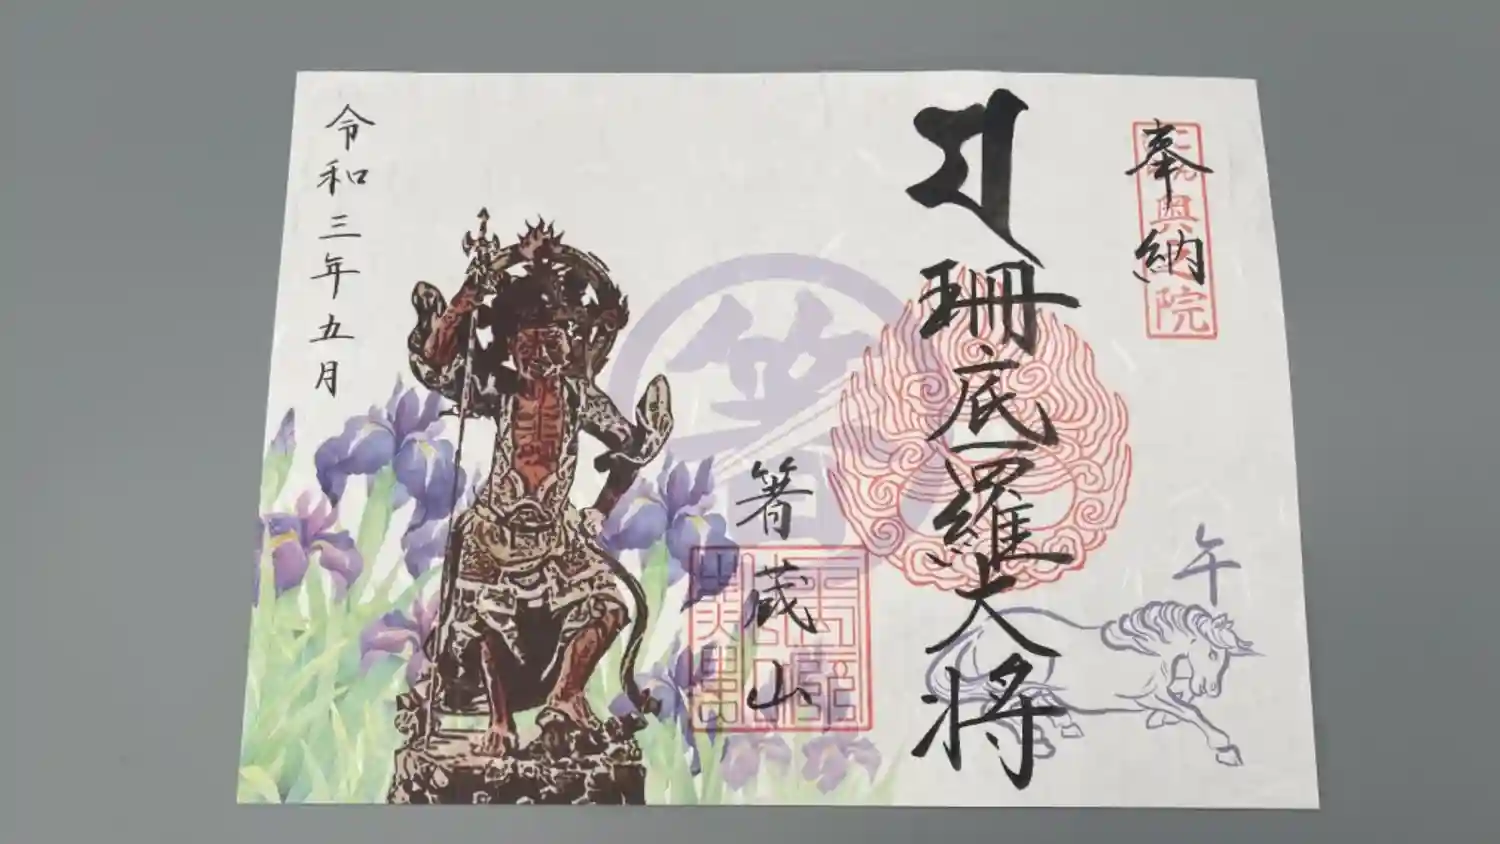 奉納
奥之院
珊底羅大将
午
箸
箸蔵山
令和三年五月